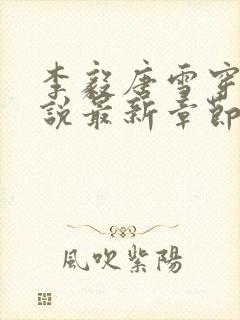 李毅唐雪穿
說最新章節
風吹紫陽